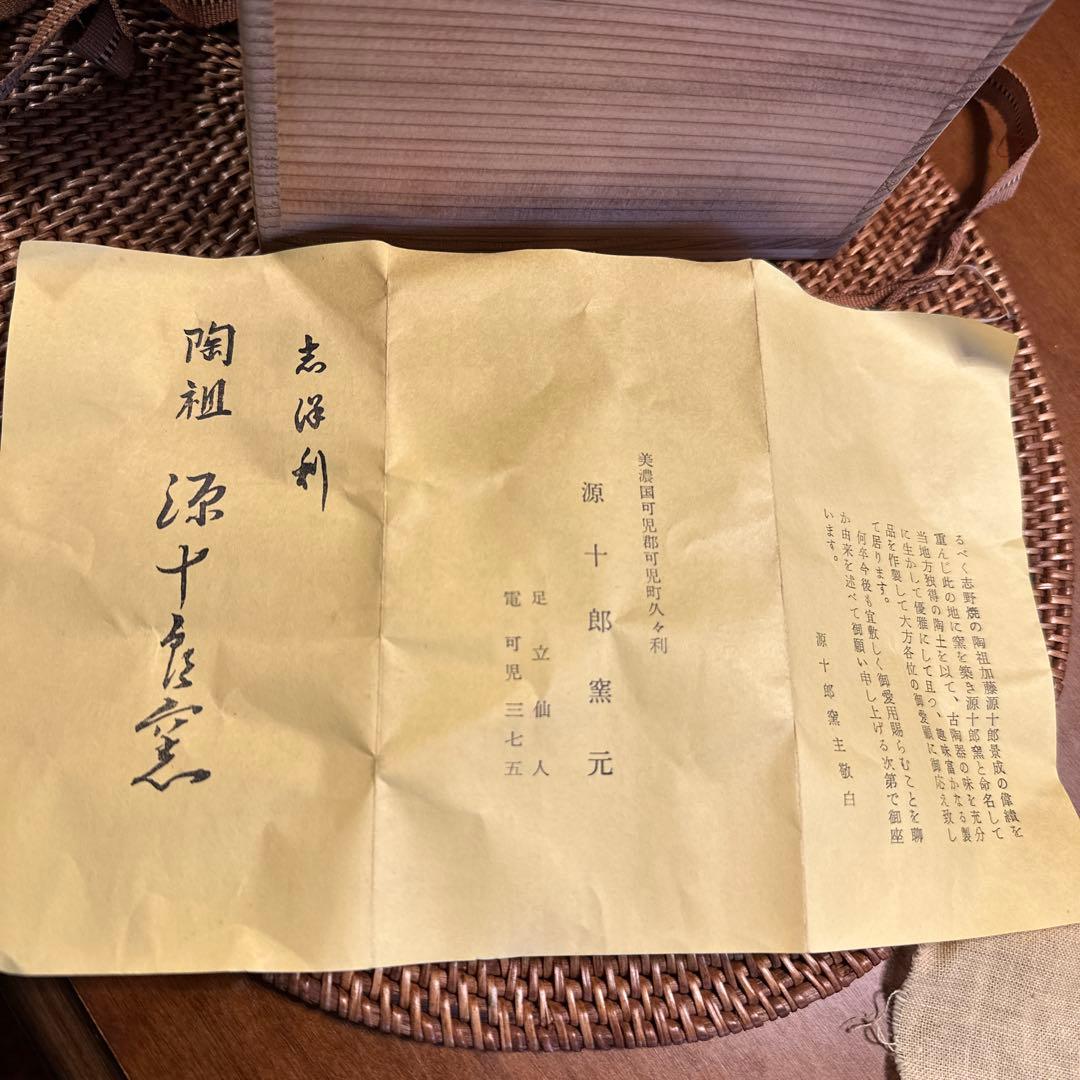 るべく志野焼の陶祖加藤源十郎景成の偉績を
重んじ此の地に窯を築き源十郎窯と命名して
当地方独得の陶土を以て、古陶器の味を充分
に生かして優雅にして且つ、趣味富かなる製
品を作製して大方各位の御愛顧に御応え致し
て居ります。
何卒今後も宜敷しく御愛用賜らむことを聊
か由来を述べて御願い申し上げる次第で御座
います。
源十郎窯主敬白
美濃国可児郡可児町久々利
源十郎窯元
足立仙人
電可児三七五
陶祖 源十郎窯